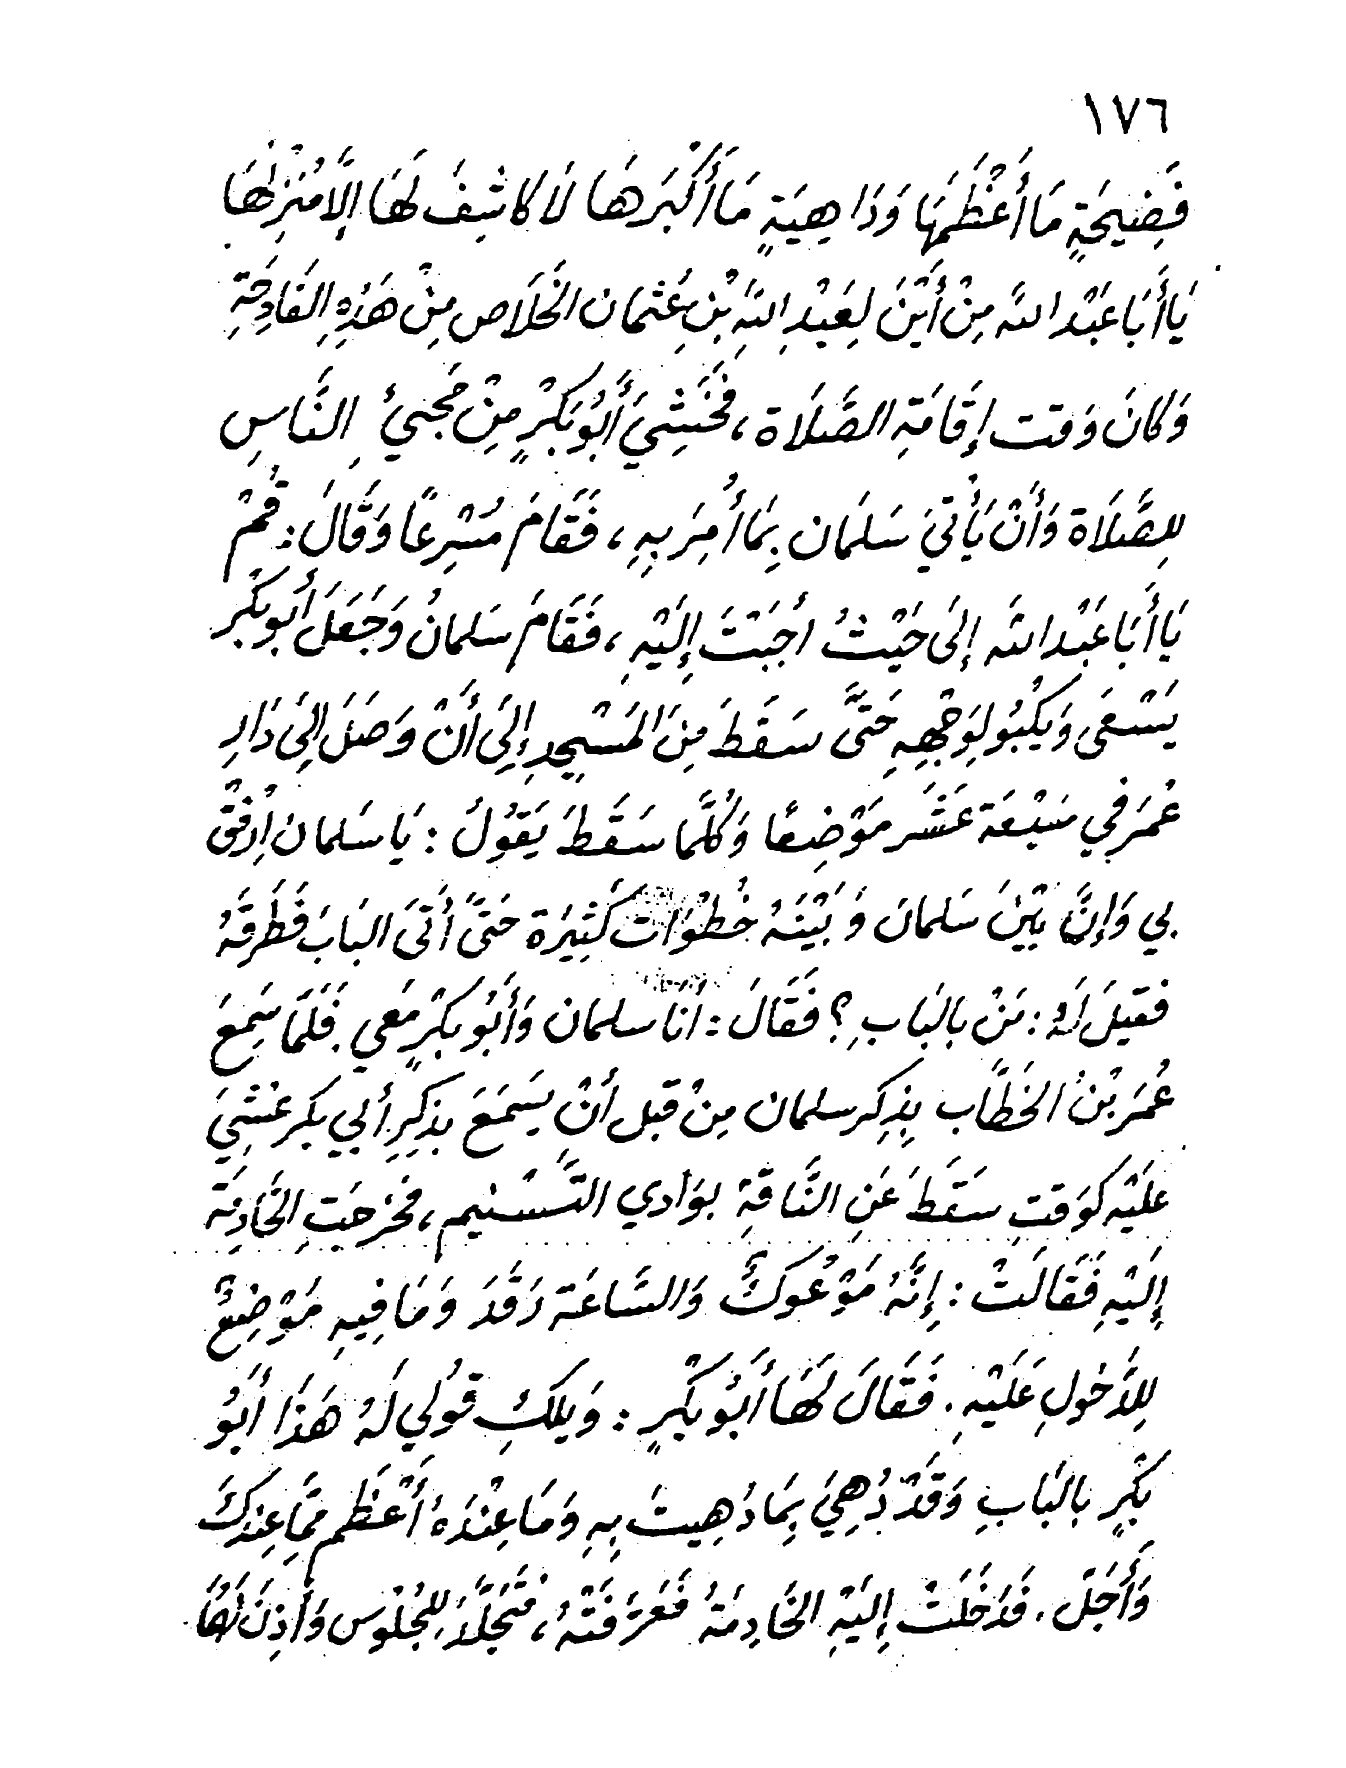 ١٧٦
فَضِيحَةٍ مَا أَعْظَمَهَا وَدَاهِيَةٍ مَا أَكْبَرَهَا لَا كَاشِفَ لَهَا إِلَّا مُنْزِلُهَا
يَا أَبَا عَبْدِ اللَّه مِنْ أَيْنَ لِعَبْدِ اللَّهِ بْنِ عُثْمَان الخَلَاص مِنْ هَذِهِ الفَادِحَةِ
وَكَانَ وَقت إِقَامَةِ الصَّلَاة ، فَخَشِيَ أَبُو بَكْرٍ مِنْ مَجِيءِ النَّاسِ
لِلصَّلَاة وَأَنْ يَأْتِيَ سَلْمَان بِمَا أُمِرَ بِهِ ، فَقَامَ مُسْرِعًا وَقَالَ : قُمْ
يَا أَبَا عَبْد اللَّه إِلَى حَيْثُ أَجَبْتَ إِلَيْهِ ، فَقَامَ سَلمَانُ وَجَعَلَ أَبُو بَكْر
يَسْعَى وَيَكْبُو لِوَجْهِهِ حَتَّى سَقَطَ مِنَ المَسْجِدِ إِلَى أَنْ وَصَلَ إِلَى دَارِ
عُمَرَ فِي سَبْعَة عَشَر مَوْضِعًا وَكُلَّمَا سَقَطَ يَقُولُ : يَا سَلمَان اِرْفُقْ
بِي وَإِنَّ بَيْنَ سَلمَان وَبَيْنَهُ خُطُوَات كَثِيرَة حَتَّى أَتَى البَابَ فَطَرَقَهُ
فَقِيلَ لَهُ : مَنْ بِالبَابِ ؟ فَقَالَ : أَنَا سلمان وَأَبُو بَكْرٍ مَعِي . فَلَمَّا سَمِعَ
عُمَرَ بْنُ الخَطَّاب بِذِكر سلمان مِنْ قَبل أَنْ يَسْمَعَ بِذِكِرِ أَبِي بَكر غُشِيَ
عَلَيْه كَوَقتِ سَقَطَ عَنِ النَّاقَةِ بِوَادِي التَّسْنِيم ، فَخَرَجَتِ الخَادِمَة
إِلَيْهِ فَقَالَتْ : إِنَّهُ مَوْعُوكٌ وَالسَّاعَة رَقَدَ وَمَا فِيهِ مَوْضِعٌ
لِلدُّخُولِ عَلَيْهِ . فَقَالَ لَهَا أَبُو بَكْرٍ : وَيلَكِ قُولِي لَهُ هَذَا أَبُو
بَكْرٍ بِالبَابِ وَقَدْ دُهِيَ بِمَا دُهِيتَ بِهِ وَمَا عِنْدَهُ أَعْظَم مِمَّا عِندَكَ
وَأَجَلّ . فَدَخَلَتْ إِلَيْهِ الخَادِمَةُ فَعَرَّفَتْهُ ، فَتَجَلَّدَ لِلجُلُوس وَأَذِنَ لَهُمَا